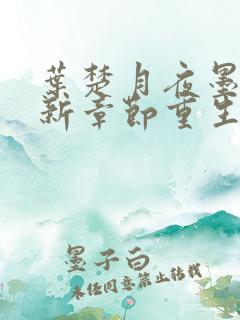 葉楚月夜墨
新章節重生
墨子白
未经同意禁止转载